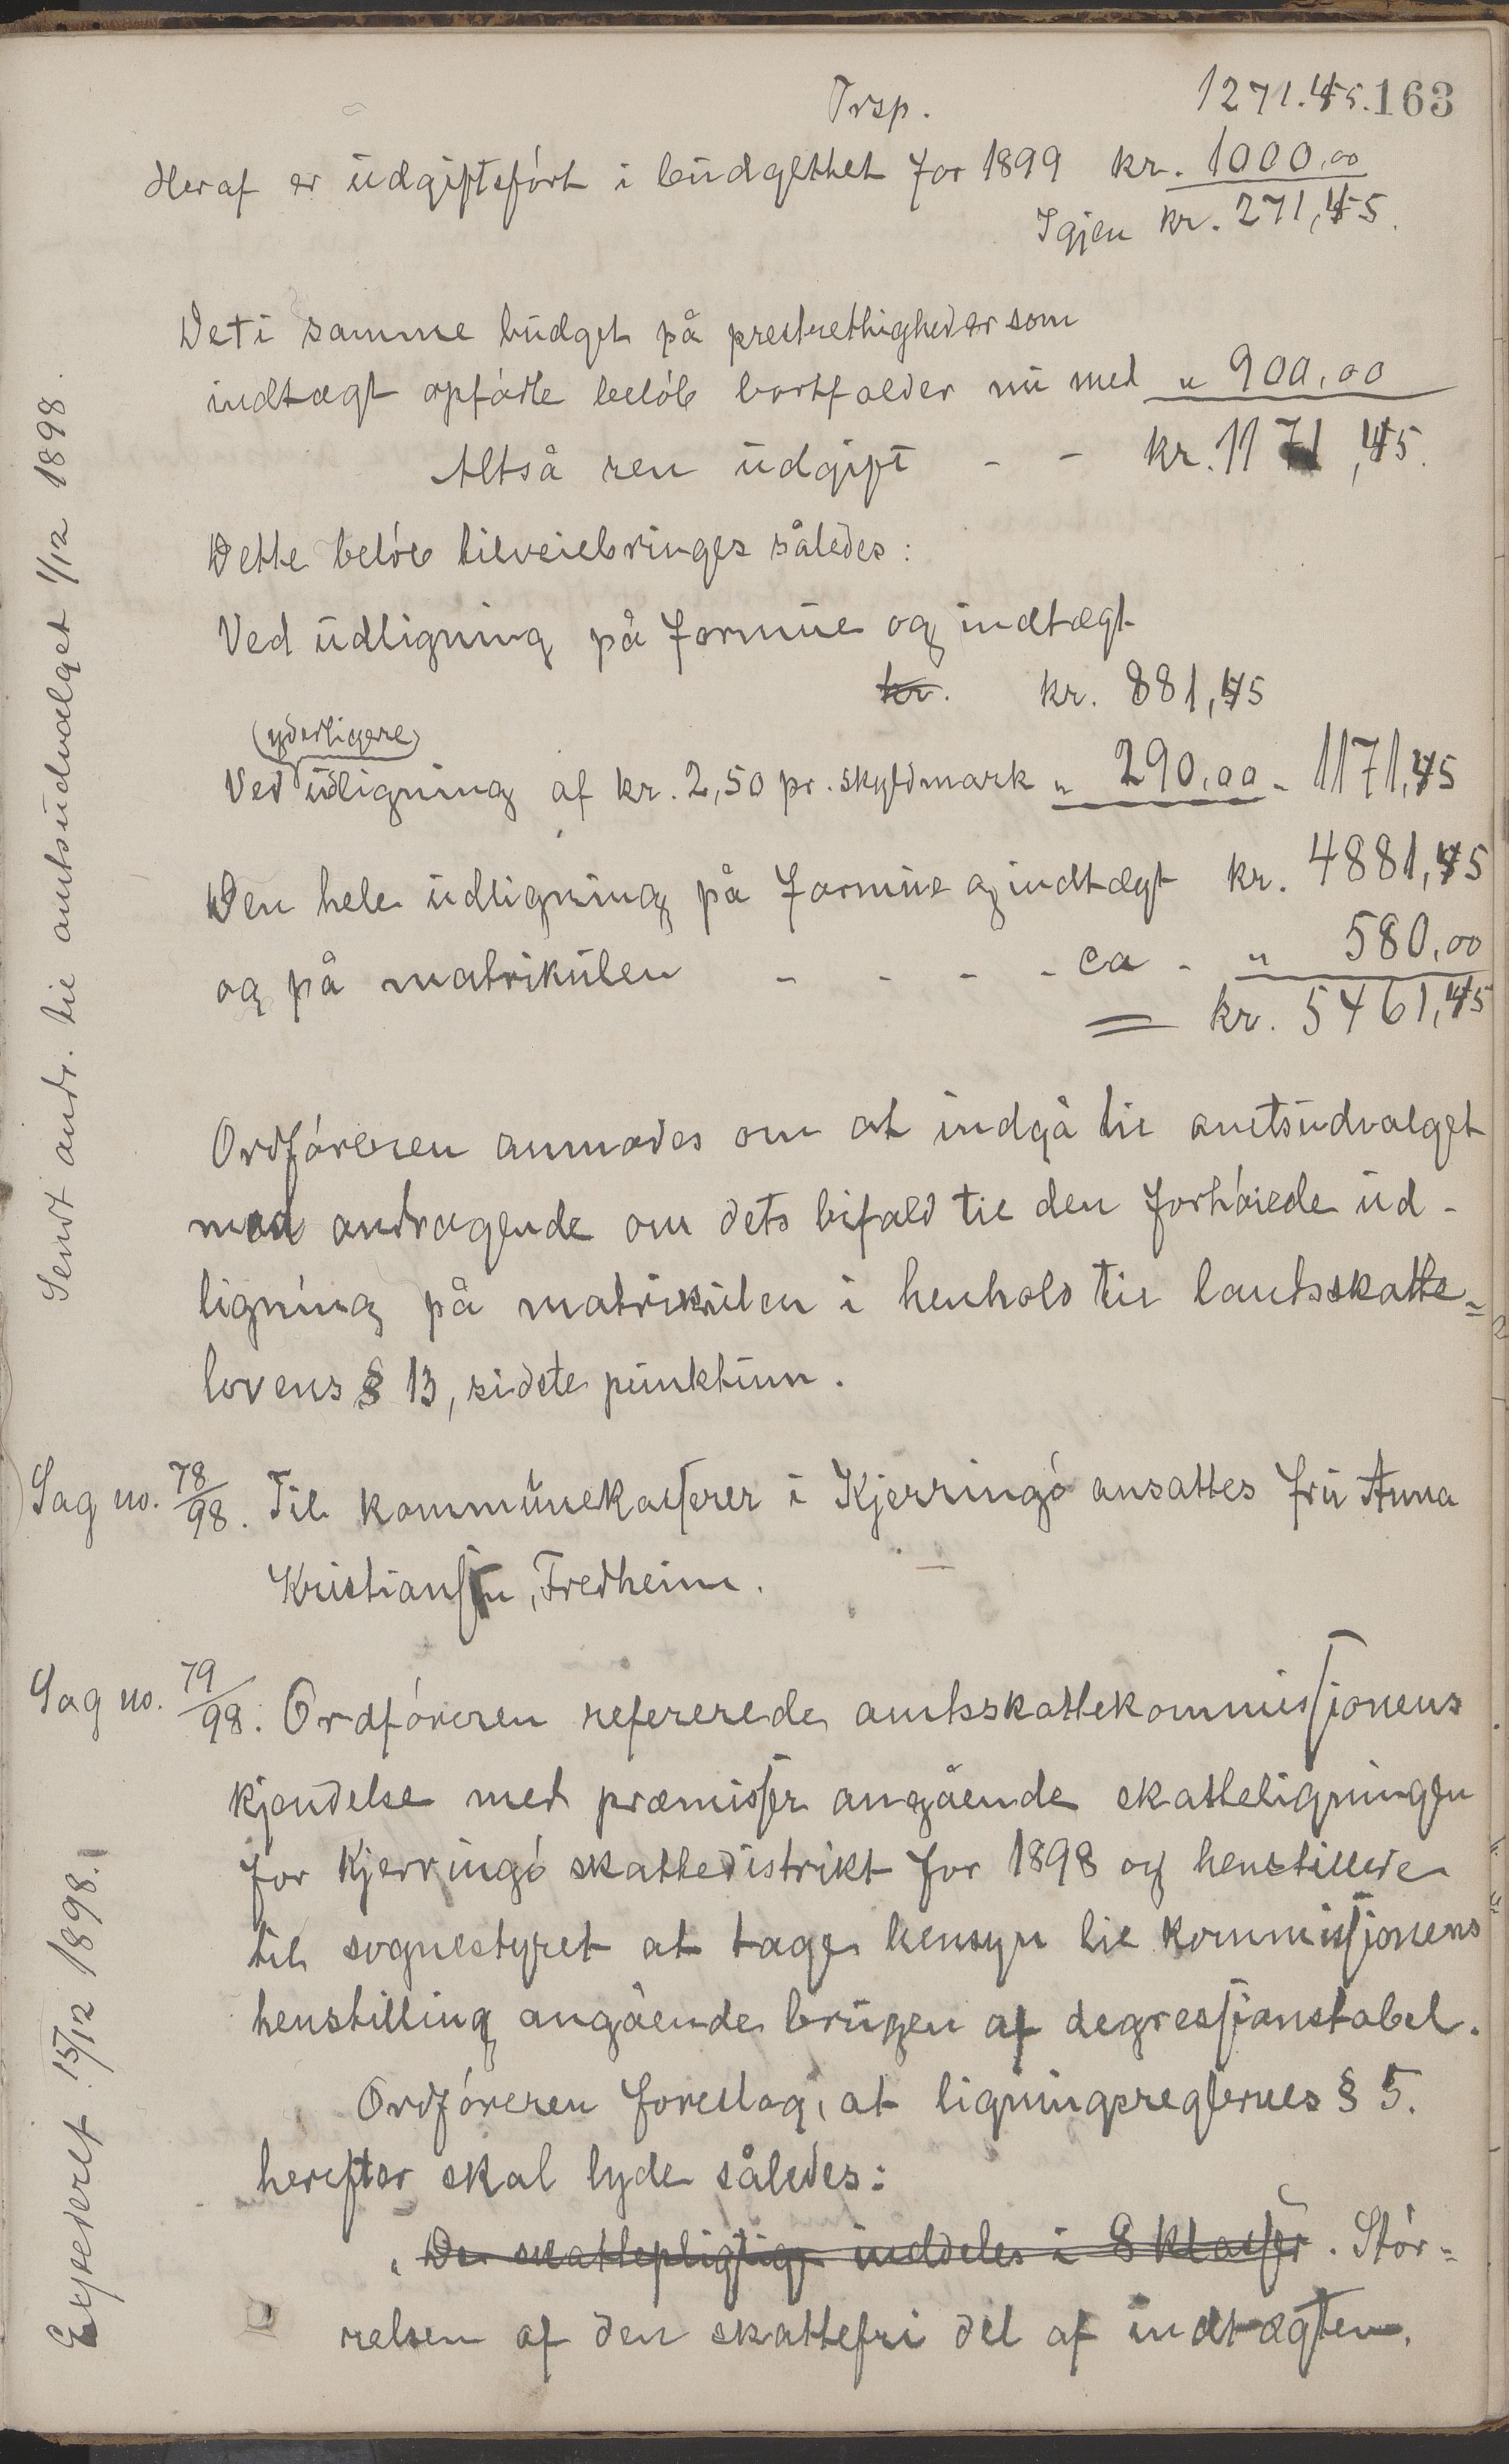 Trsp. 1271.45. 163
Heraf er udgiftsført i budgettet for 1899 kr. 1000.00
Igjen kr. 271,45.
Det i samme budget på presterettigheder som
indtægt opførte beløb bortfalder nu med " 900.00
Altså ren udgift - - kr. 1171,45.
Dette beløb tilveiebringes således:
Ved udligning på formue og indtægt
kr. kr. 881,45
(yderligere)
Ved udligning af kr. 2,50 pr. skyldmark " 290,00 - 1171,45
Den hele udligning på formue og indtægt kr. 4881,45
og på matrikulen - - - - ca - " 580,00
= kr. 5461,45
Sendt andr. til amtsudvalget 1/12 1898.
Ordføreren anmodes om at indgå til amtsudvalget
med andragende om dets bifald til den forhøiede ud-
ligning på matrikulen i henhold til landsskatte=
lovens § 13, sidste punktum.
Sag no. 78/98. Til kommunekasserer i Kjerringø ansattes fru Anna
Kristiansen, Fredheim.
Sag no. 79/98. Ordføreren refererede amtsskattekommissionens
kjendelse med præmisser angående skatteligningen
for Kjerringø skattedistrikt for 1898 og henstillede
til sognestyret at tage hensyn til kommissionens
henstilling angående brugen af degressionstabel.
Expederet 15/12 1898.
Ordføreren foreslog, at ligningsreglernes § 5.
herefter skal lyde således:
"De skattepligtige inddeles i 8 klasser. Stør=
relsen af den skattefri del af indtægten.